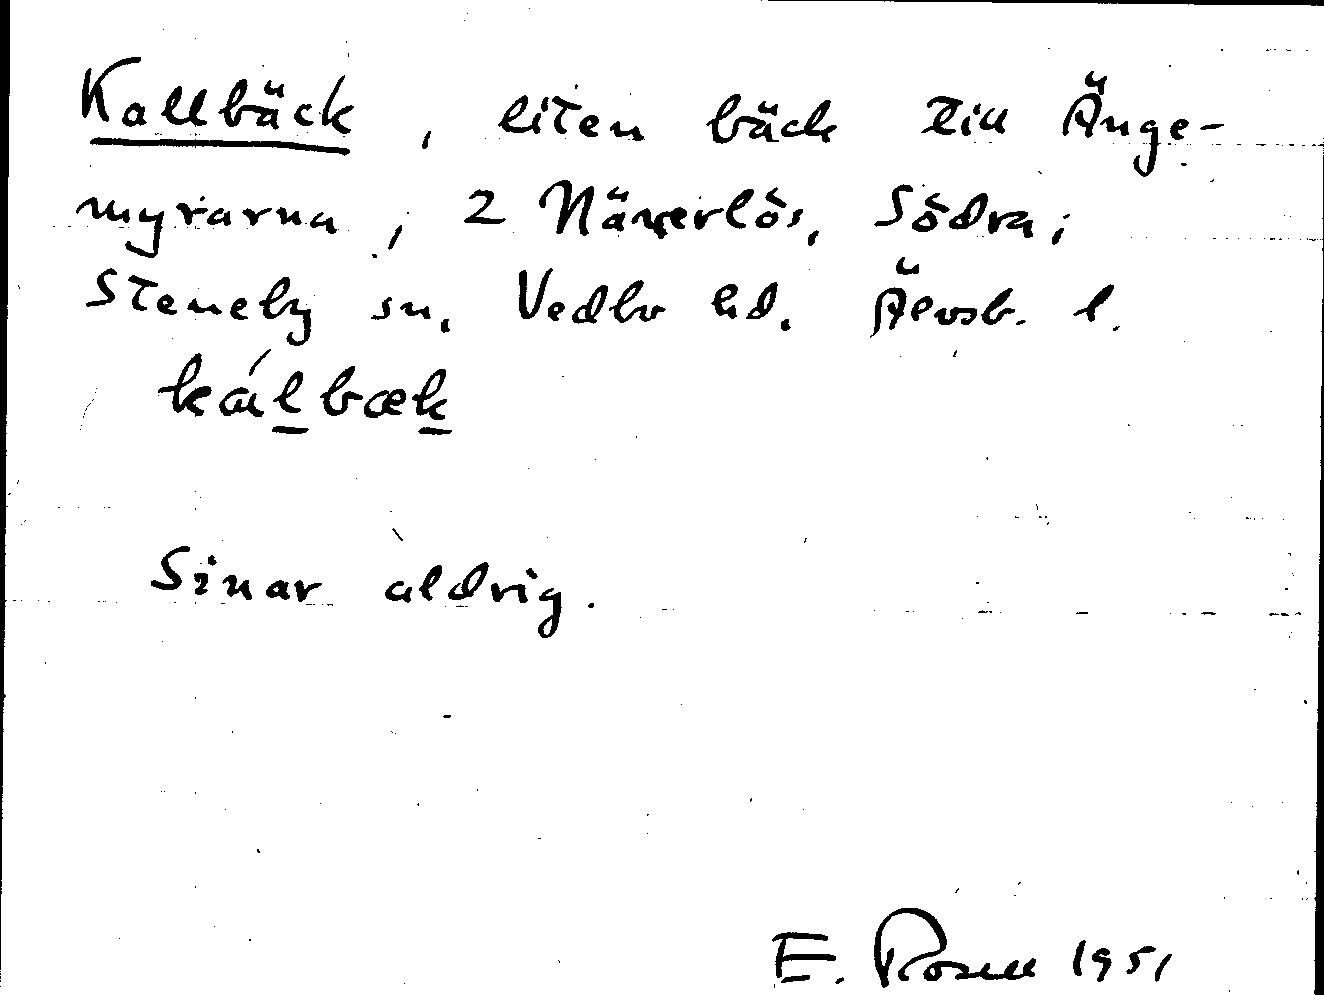 Kallbäck, liten bäck till Änge-
myrarna, 2 Närerlös, Södra;
Steneby sn. Vedbo hd. Älvsb. l.
kálbæk
Sinar aldrig.
E. Rosell 1951